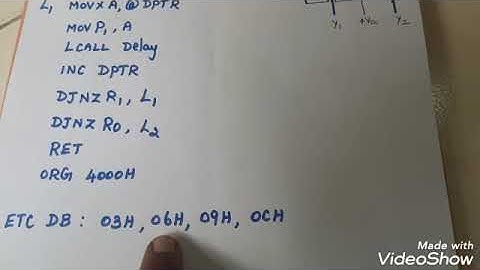 L1 MOVX A, @ DPTR
MOV P1, A
LCALL Delay
INC DPTR
DJNZ R1, L1
DJNZ R0, L2
RET
ORG 4000H
ETC DB : 03H, 06H, 09H, 0CH
Y1 +Vcc Y2
Made with
VideoShow